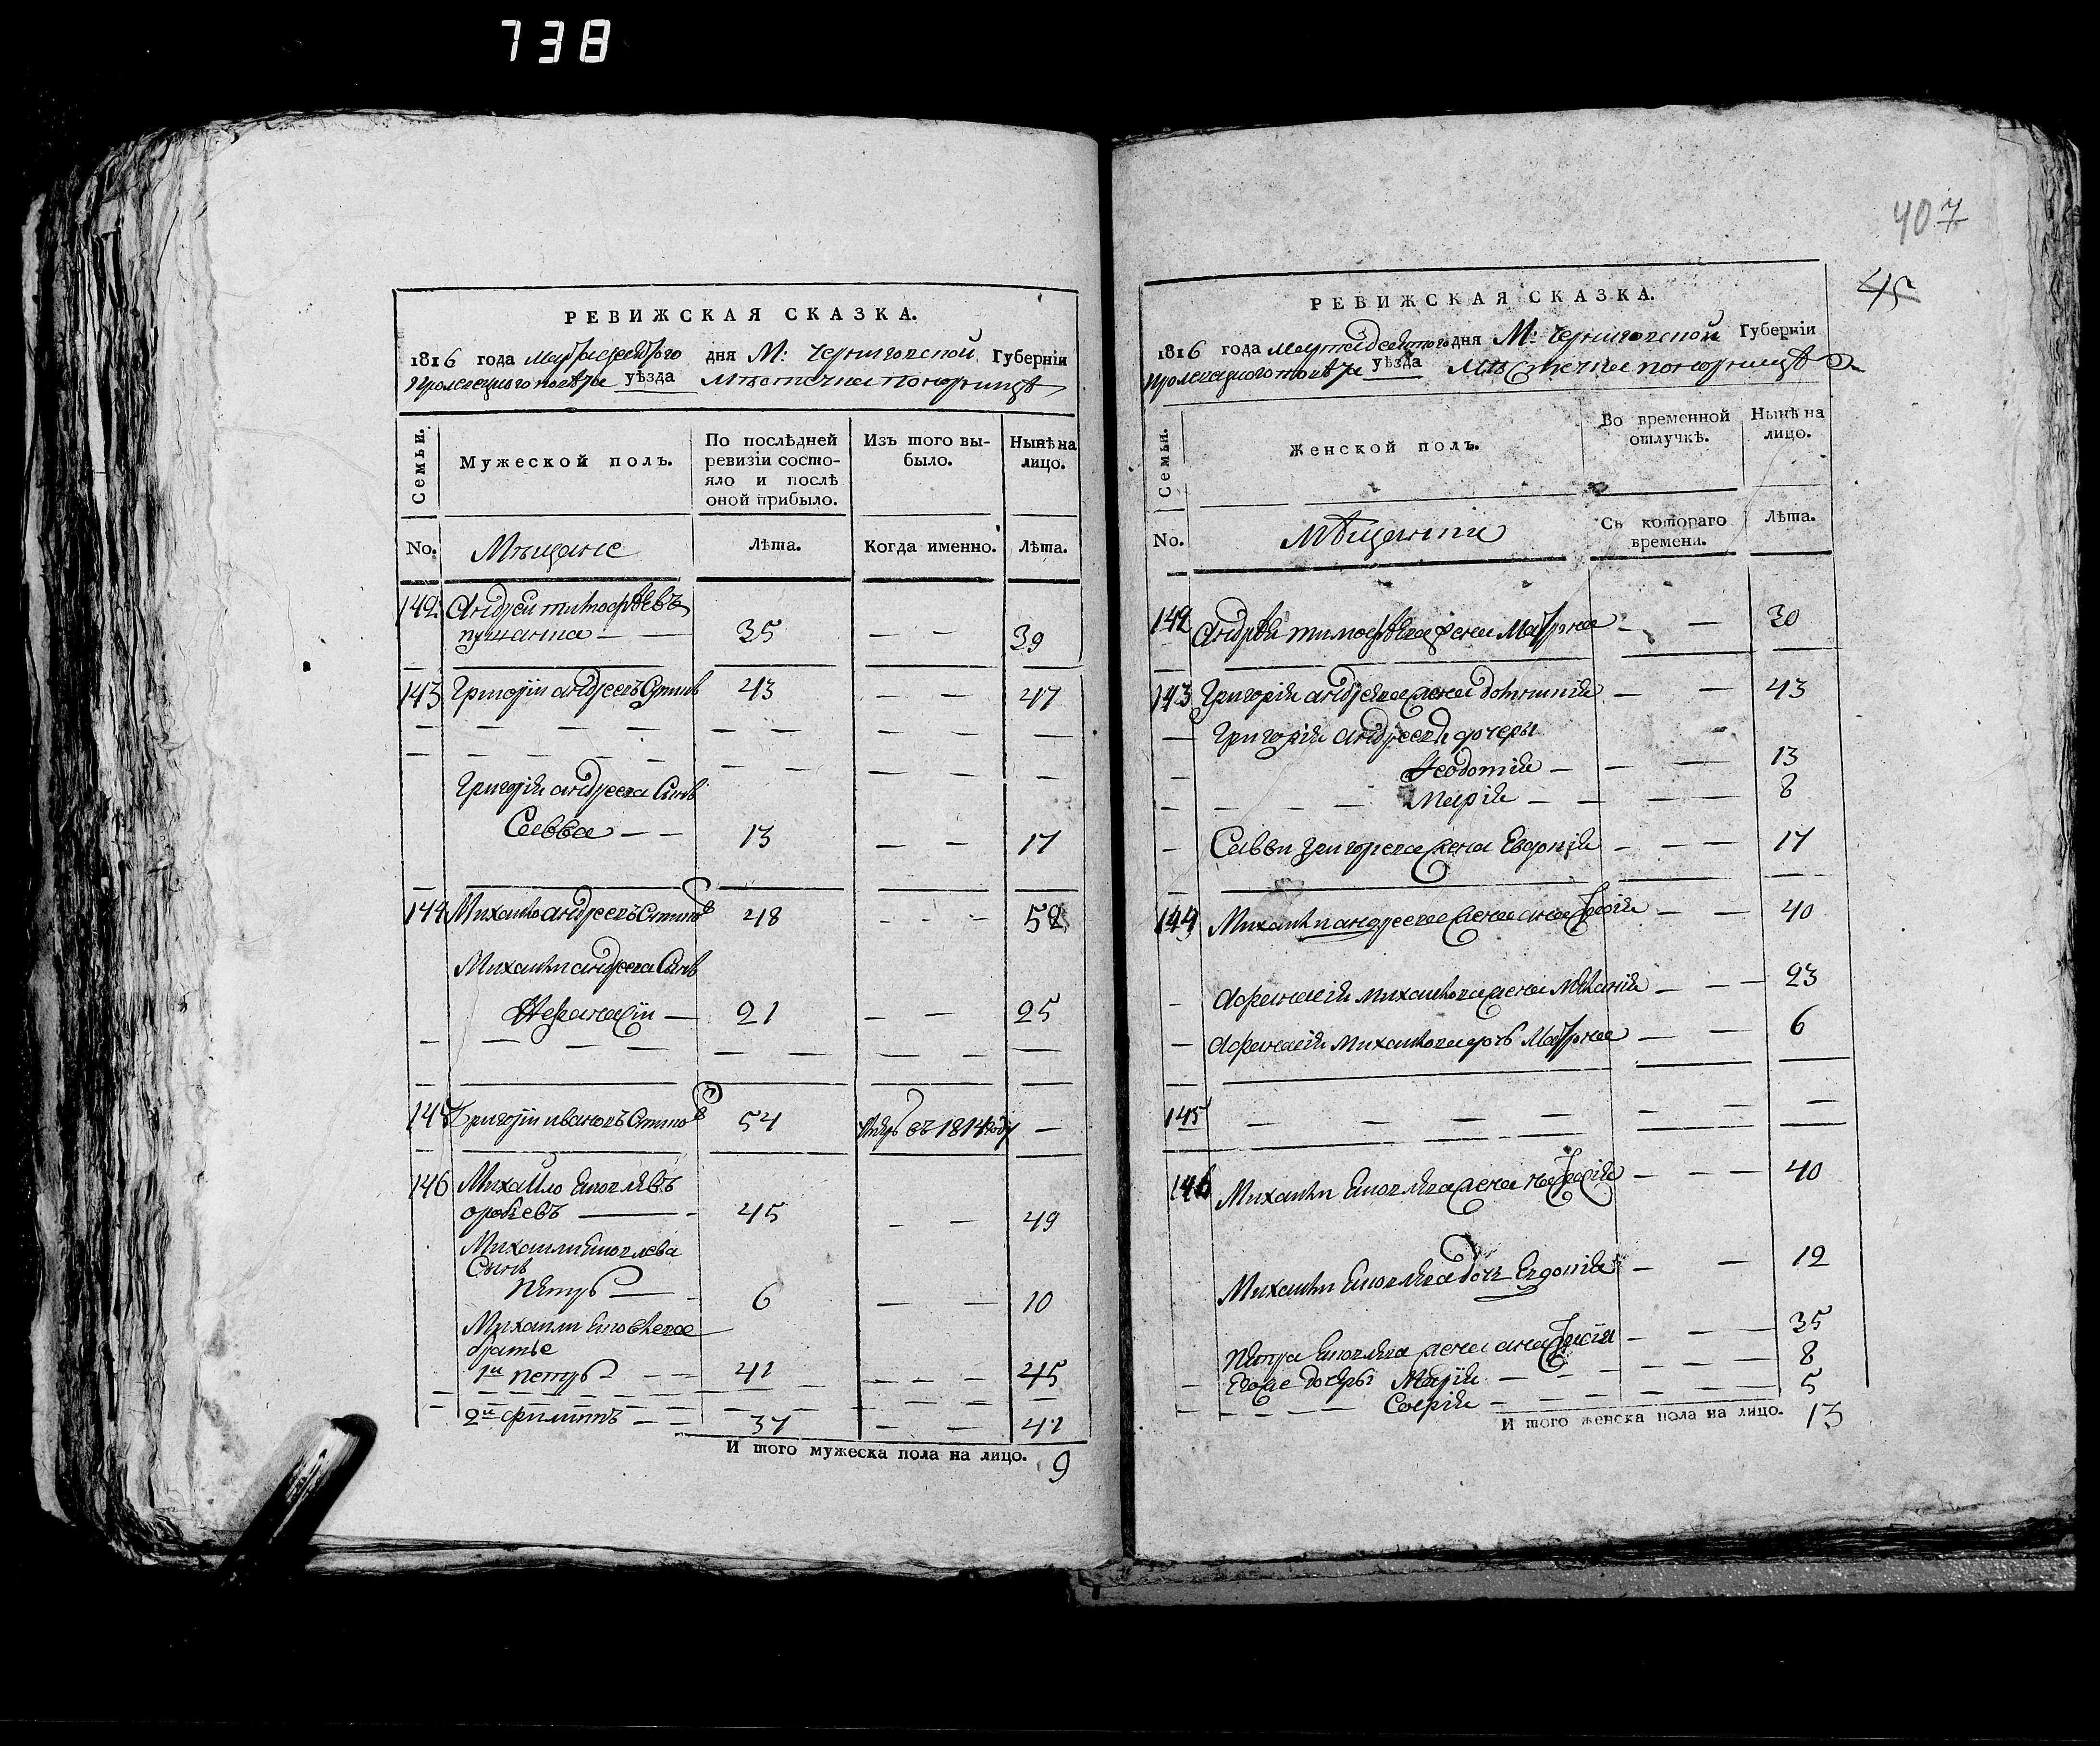 738
РЕВИЖСКАЯ СКАЗКА.
1816 года Марта дня М: Черниговской Губерніи
повѣта уѣзда Мѣстечка Понорницѣ
Семьи.
Мужеской полъ.
По послѣдней ревизіи состо-
яло и послѣ
оной прибыло.
Изъ того вы-
было.
Нынѣ на
лицо.
No.
Мѣщане
Лѣта.
Когда именно.
Лѣта.
142 Андрей тимофѣевъ
35 — — 39
143 Григорій андреевъ 43 — — 47
Григорія андреева Сынъ
Савва — — 13 — — 17
144 Михайло андреевъ 48 - - - 52
Михайли андреева Сынъ
Афанасій — 21 — — 25
145 Григорій ивановъ 54 въ 1814 году —
146 Михайло
45 — — 49
Михаили
Сынъ
Петръ — 6 — — 10
Михаили
братье
1й петръ — — 41 — — 45
2й филиппъ — — 37 — — 41
И того мужеска пола на лицо. 9
407
45
РЕВИЖСКАЯ СКАЗКА.
1816 года Марта дня М: Черниговской Губерніи
повѣта уѣзда Мѣстечка Понорницѣ
Семьи.
Женской полъ.
Во временной
отлучкѣ.
Нынѣ на
лицо.
No.
Мѣщанки
Съ котораго
времени.
Лѣта.
142 Андрея тимофѣева жена Матрона — — 30
143 Григорія андреева жена — — 43
Григорія андреева дочеры
Феодотія — — — 13
Марія — — — — 8
Саввы григорева жена Евдокія — — — 17
144 Михайли андреева жена анастасія — — 40
Афанасія михайлова жена Меланія — — — 23
Афанасія михайлова дочь Матрона — — 6
145 — — — — — —
146 Михайли жена настасія — — — 40
Михайли дочь Евдокія — — 12
Петра жена анастасія — — — 35
Егоже дочеры Марія — — — 8
Софія — — — — 5
И того женска пола на лицо. 13